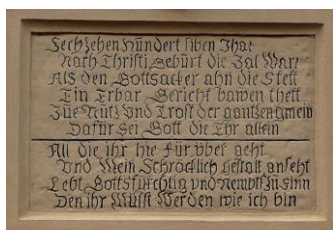 Sechzehen Hundert siben Jhar
Nach Christi gebürt die Zal War
Als den Gottsacker ahn die Stett
Ein Erbar Gericht bawen thett
Zue Nutz Vnd Trost der gantzen gmein
Dafür Sei Gott die Ehr allein
All die ihr hie Für vber geht
Vnd Mein Schröcklich gestalt anseht
Lebt Gottsfürchtig vnd Nembts Zu sinn
Den ihr Müsst Werden wie ich bin